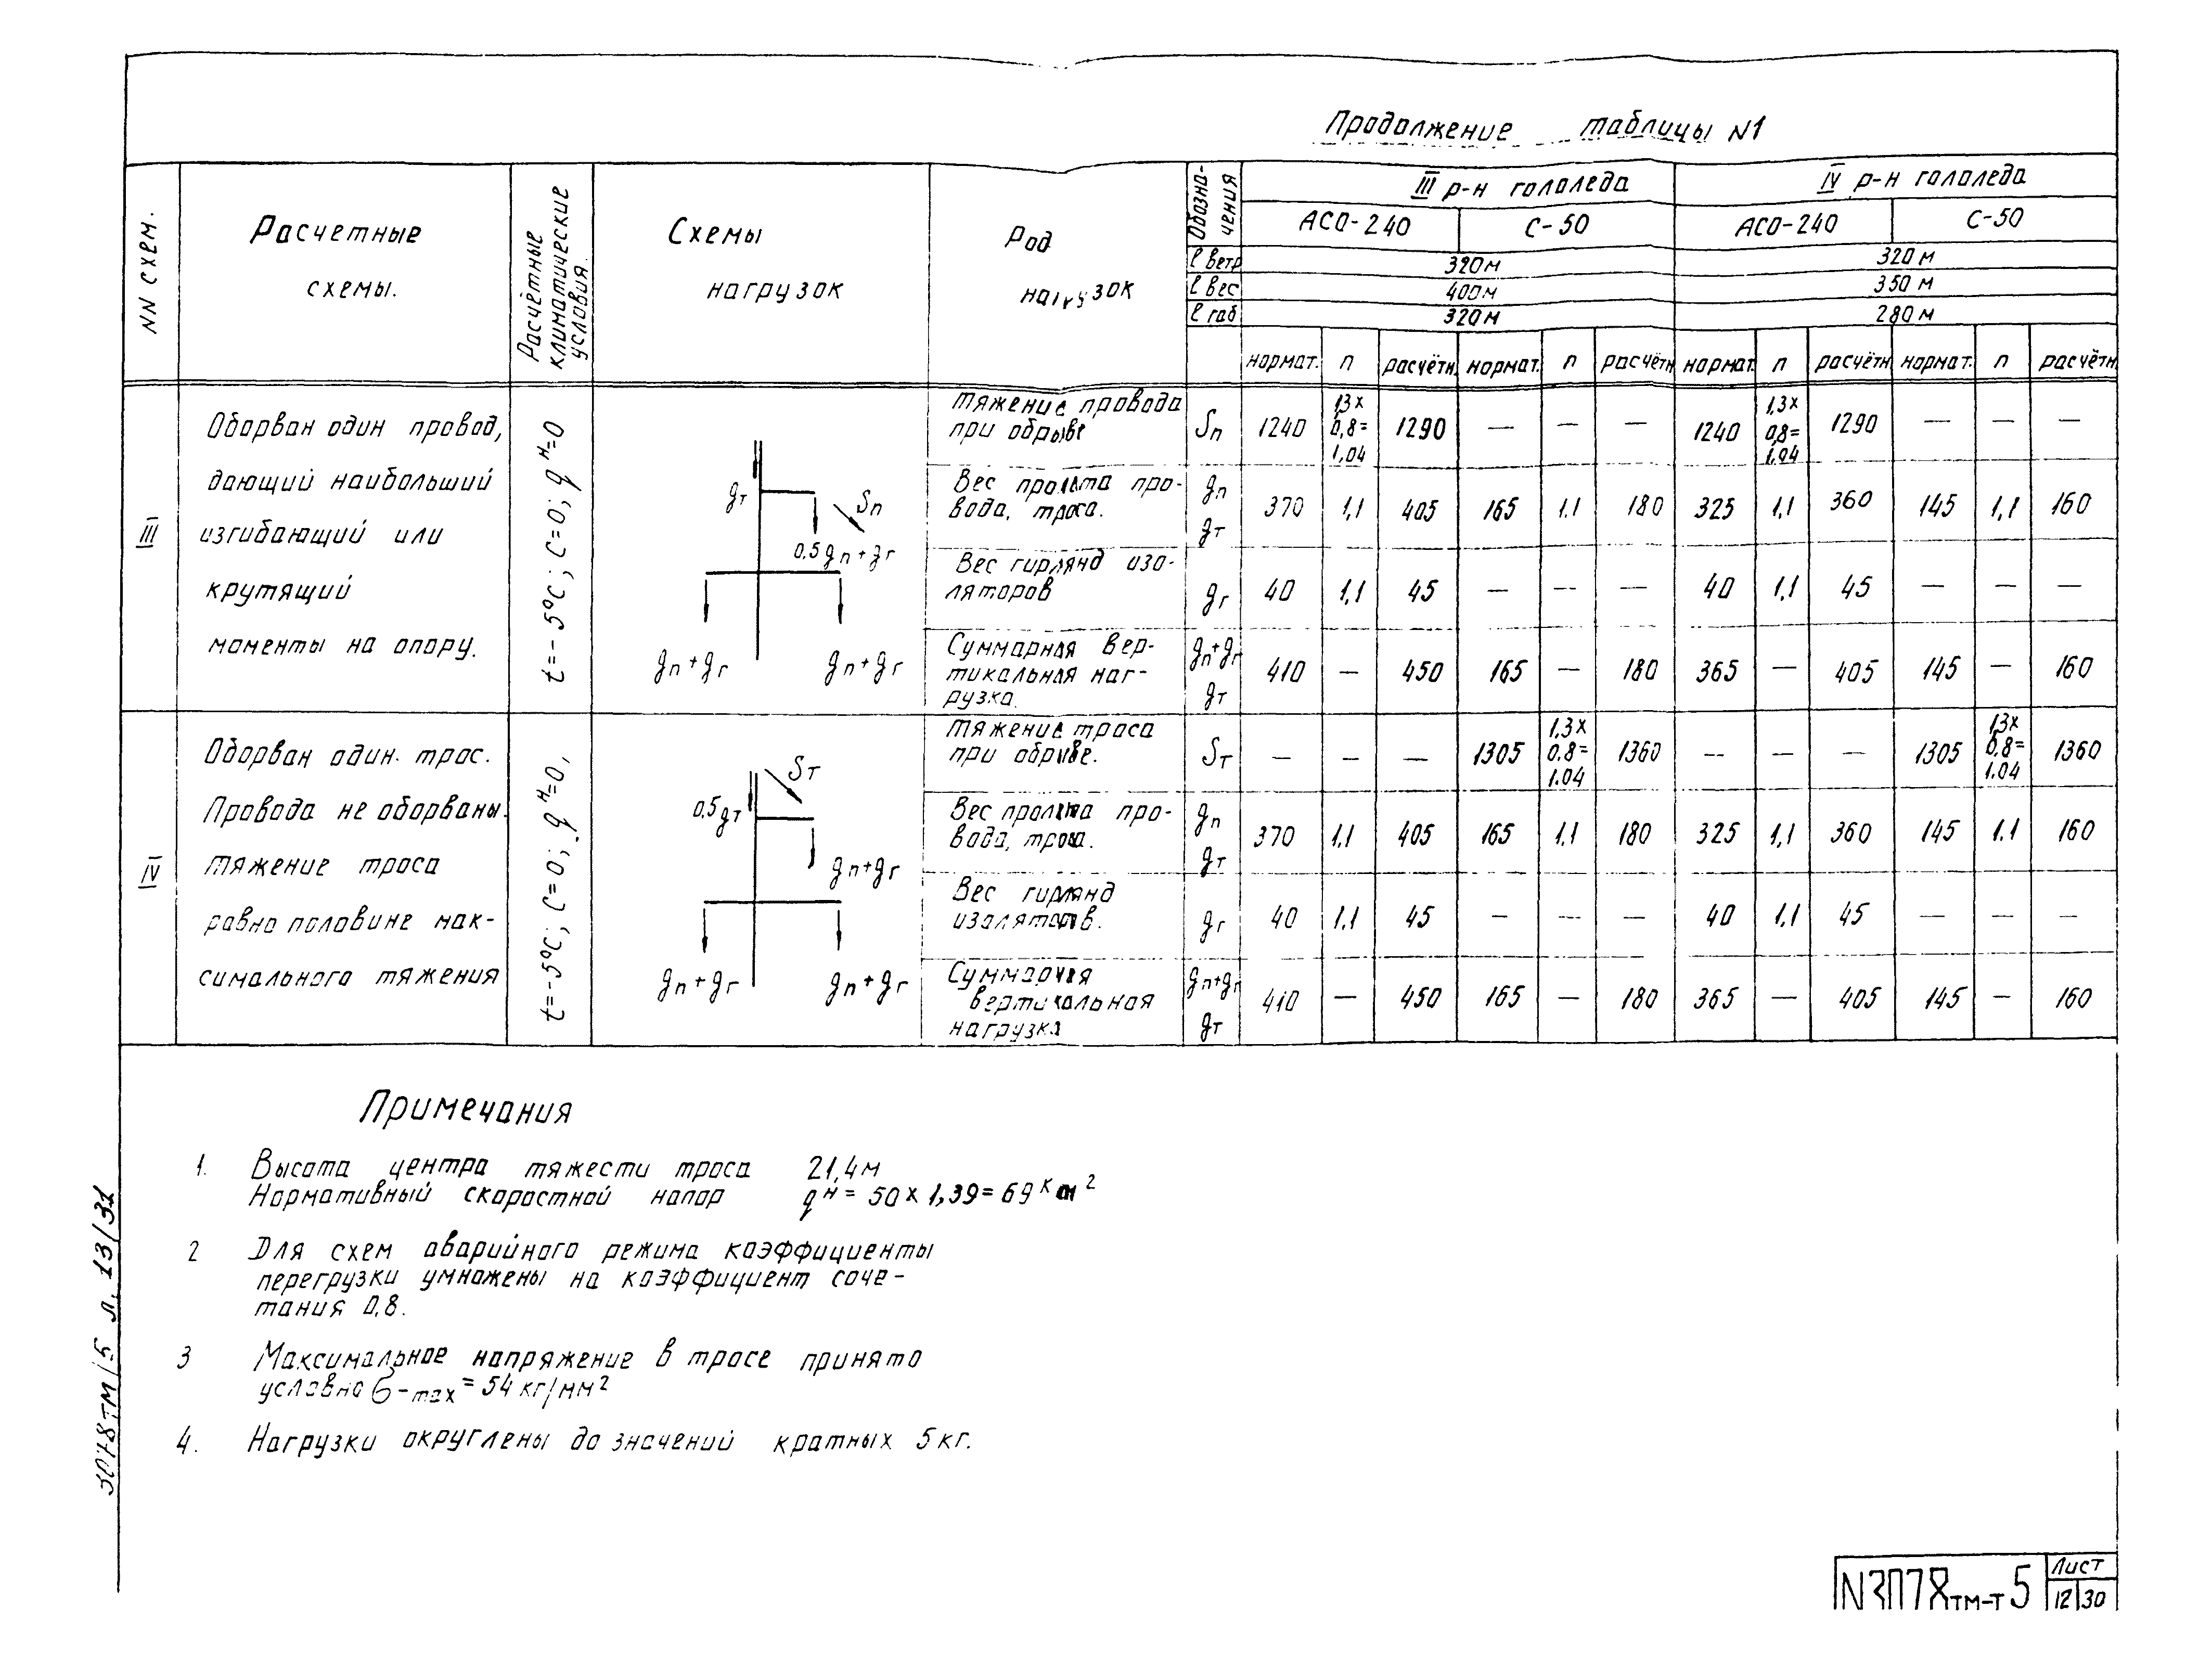 Продолжение таблицы N1
NN схем.
Расчетные
схемы.
Расчётные
климатические
условия.
Схемы
нагрузок
Род
нагрузок
Обозна-
чения
III р-н гололеда
IV р-н гололеда
АСО-240
С-50
АСО-240
С-50
ℓ ветр 320м 320м
ℓ вес 400м 350м
ℓ габ 320м 280м
нормат. n расчётн. нормат. n расчётн нормат. n расчётн нормат. n расчётн.
III
Оборван один провод,
дающий наибольший
изгибающий или
крутящий
моменты на опору.
t=-5°C; C=0; qн=0
gт
Sп
0,5gп+gг
gп+gг
gп+gг
Тяжение провода
при обрыве
Sп 1240 1,3х 0,8= 1,04 1290 — — — 1240 1,3х 0,8= 1,04 1290 — — —
Вес пролета про-
вода, троса.
gп
gт
370 1,1 405 165 1.1 180 325 1,1 360 145 1,1 160
Вес гирлянд изо-
ляторов
gг 40 1,1 45 — — — 40 1,1 45 — — —
Суммарная вер-
тикальная наг-
рузка.
gп+gг
gт
410 — 450 165 — 180 365 — 405 145 — 160
IV
Оборван один. трос.
Провода не оборваны.
Тяжение троса
равно половине мак-
симального тяжения
t=-5°C; C=0; qн=0,
Sт
0,5gт
gп+gг
gп+gг
gп+gг
Тяжение троса
при обрыве.
Sт — — — 1305 1,3х 0.8= 1.04 1360 — — — 1305 1,3х 0,8= 1.04 1360
Вес пролета про-
вода, троса.
gп
gт
370 1.1 405 165 1.1 180 325 1,1 360 145 1.1 160
Вес гирлянд
изоляторов.
gг 40 1.1 45 — — — 40 1,1 45 — — —
Суммарная
вертикальная
нагрузка
gп+gг
gт
410 — 450 165 — 180 365 — 405 145 — 160
Примечания
1. Высота центра тяжести троса 21,4м
Нормативный скоростной напор qн = 50 х 1,39 = 69
2 Для схем аварийного режима коэффициенты
перегрузки умножены на коэффициент соче-
тания 0,8.
3 Максимальное напряжение в тросе принято
условно σ-max = 54 кг/мм²
4. Нагрузки округлены до значений кратных 5кг.
3078тм/5 л. 13/31
N3078тм-т5
Лист
12 30